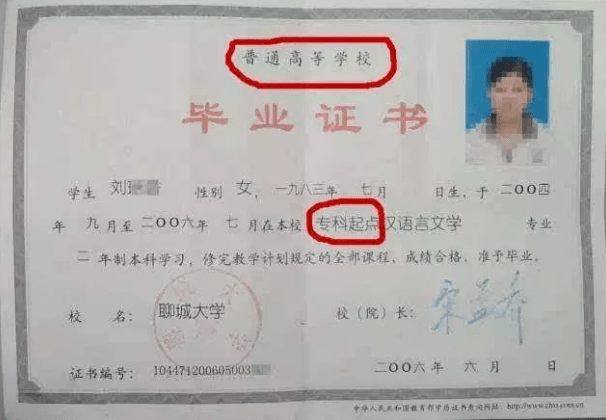 普通高等学校
毕业证书
学生 刘 性别 女，一九八三年 七月 日生，于 二〇〇四
年 九月至二〇〇六年 七月在本校 专科起点汉语言文学 专业
二 年制本科学习，修完教学计划规定的全部课程，成绩合格，准予毕业。
校 名： 聊城大学 校（院）长：
证书编号： 104471200605003 二〇〇六年 六月 日
中华人民共和国教育部学历证书查询网址：http://www.chsi.com.cn